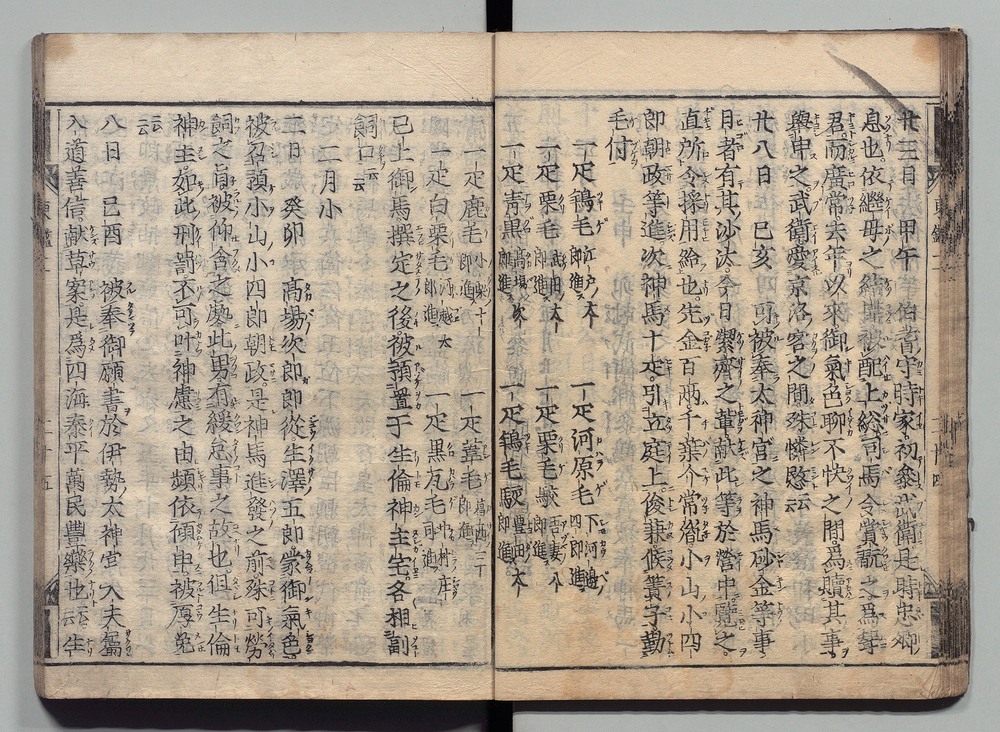 廿三日 甲午 伯耆守時家初參武衛是時忠卿
息也依繼母之結構被配上総司馬令賞翫之為聟
君而廣常去年以來御氣色聊不快之間為贖其事
擧申之武衛愛京洛客之間殊憐愍云云
廿八日 己亥 可被奉太神宮之神馬砂金等事
日者有其沙汰今日之輩献此等於營中覽之
直所令採用給也先金百兩千葉介常胤小山小四
郎朝政等進次神馬十疋引立庭上俊兼候簀子勤
毛付
一疋鴾毛 江戸太郎進 一疋河原毛 下河邊四郎進
一疋栗毛 武田太郎進 一疋栗毛駮 吾妻八郎進
一疋青黒 高場次郎進 一疋鴾毛駮 豊田太郎進
一疋鹿毛 小栗十郎進 一疋葦毛 葛西三郎進
一疋白栗毛 河越太郎進 一疋黒瓦毛 中村庄司進
已上御馬撰定之後被預置于生倫神主宅各相副
飼口云云
二月小
二日癸卯 高場次郎郎從生澤五郎蒙御氣色
被召預小山小四郎朝政是神馬進發之前殊可勞
飼之旨被仰含之處此男有緩怠事之故也但生倫
神主如此刑罰不可叶神慮之由頻依傾申被厚免
云云
八日 己酉 被奉御願書於伊勢太神宮大夫屬
入道善信献草案是為四海泰平萬民豊樂也云云生
東鑑二 二十四
東鑑二 二十五